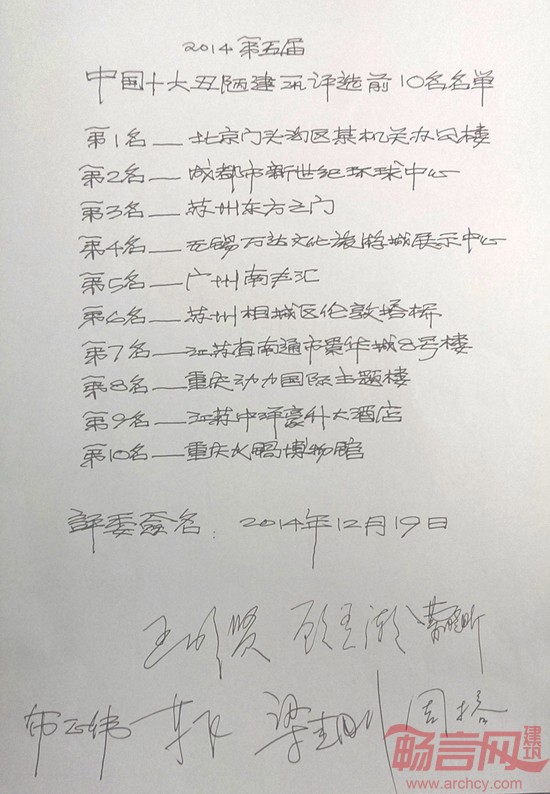 2014第五届
中国十大丑陋建筑评选前10名名单
第1名—北京门头沟区某机关办公楼
第2名—成都市新世纪环球中心
第3名—苏州东方之门
第4名—无锡万达文化旅游城展示中心
第5名—广州南丰汇
第6名—苏州相城区伦敦塔桥
第7名—江苏省南通市景华城8号楼
第8名—重庆动力国际主题楼
第9名—江苏中洋豪升大酒店
第10名—重庆大鹏博物馆
评委签名：2014年12月19日
王明贤 顾孟潮
布正伟 梁 周榕
畅言网 建筑
www.archcy.com